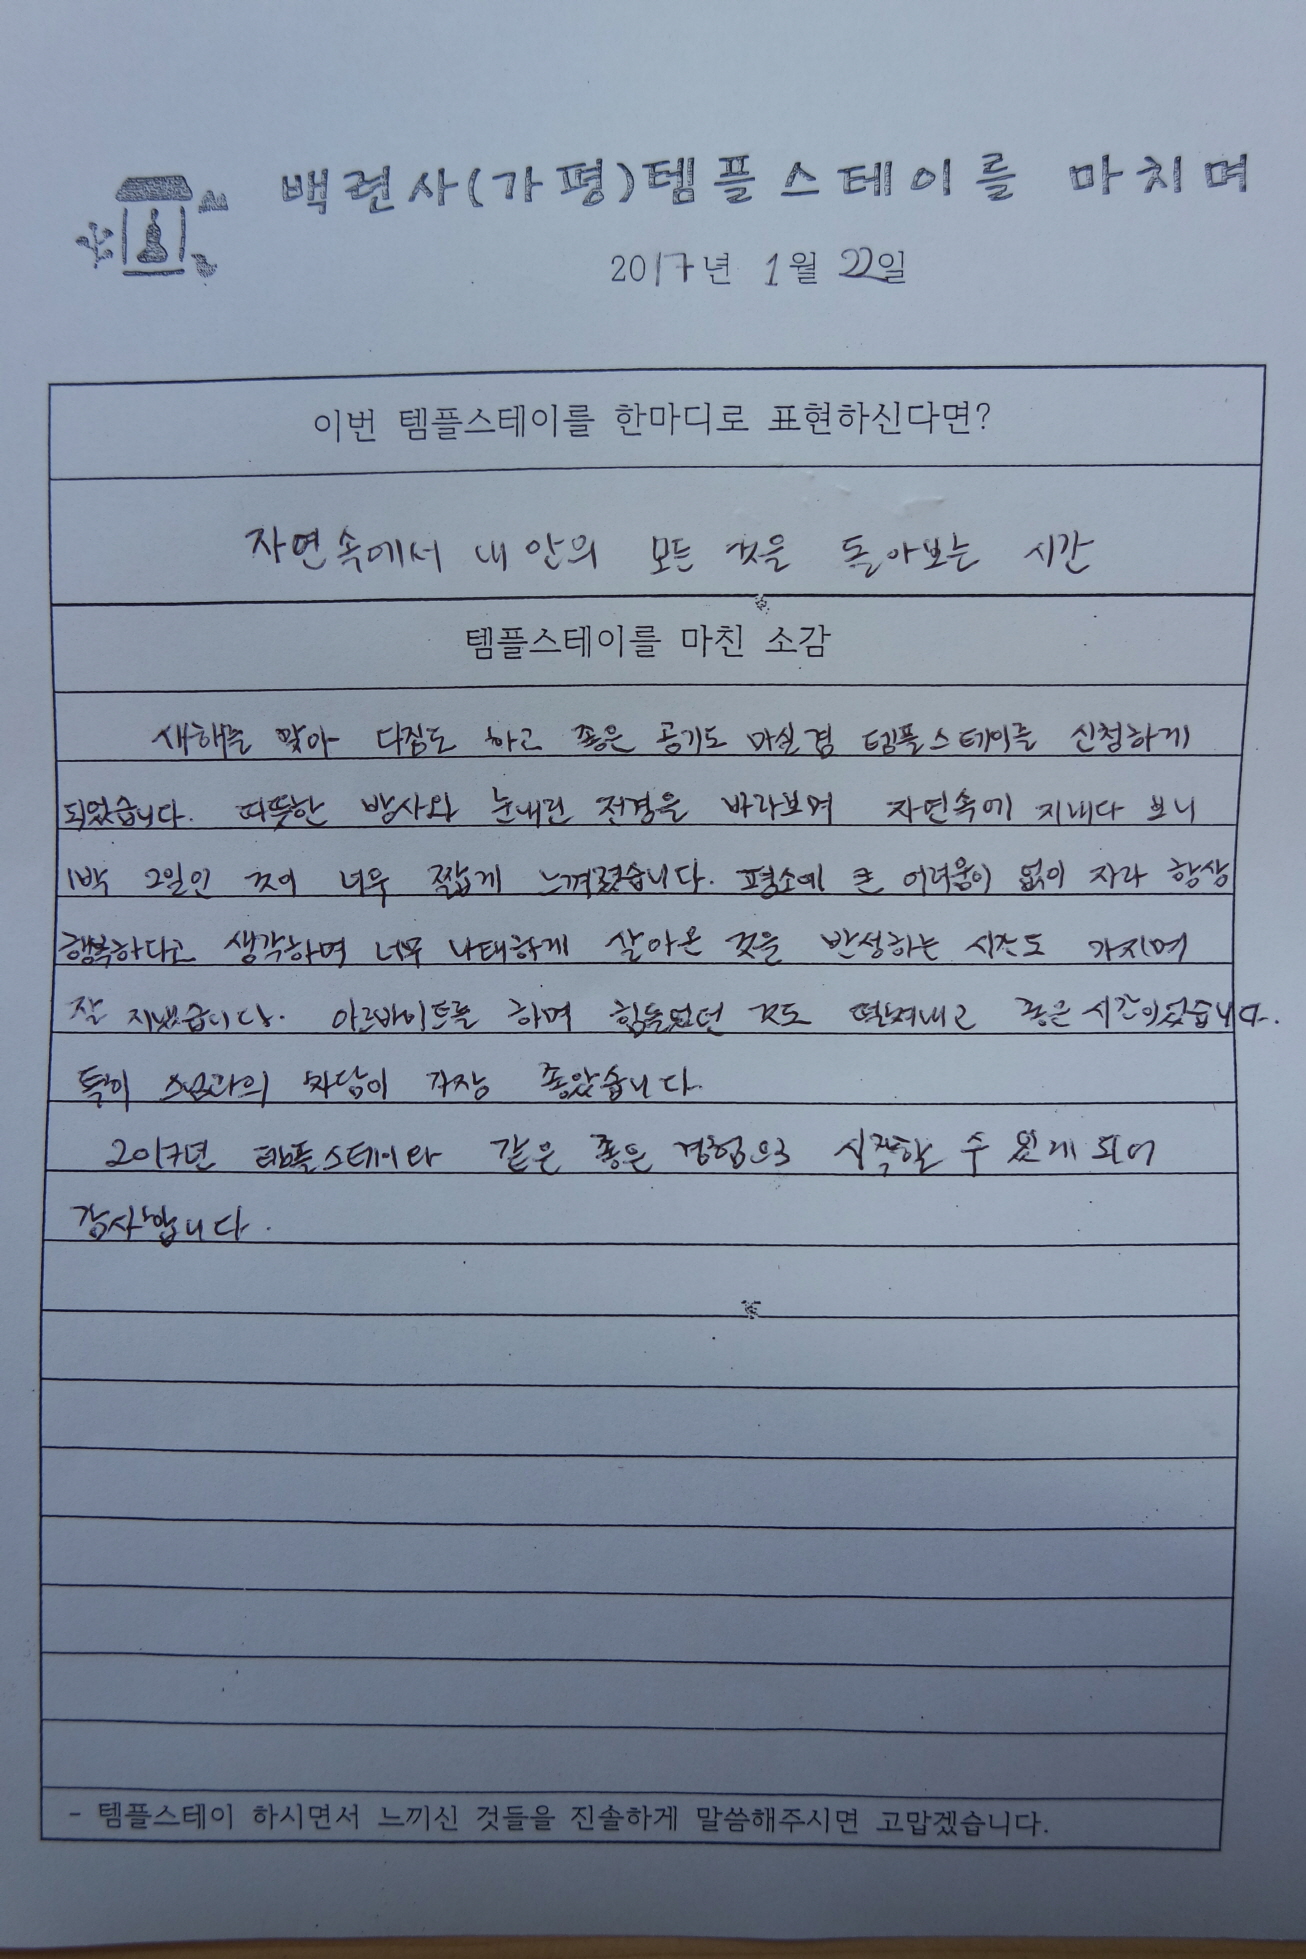 백련사(가평)템플스테이를 마치며
2017년 1월 22일
이번 템플스테이를 한마디로 표현하신다면?
자연속에서 내 안의 모든 것을 돌아보는 시간
템플스테이를 마친 소감
새해를 맞아 다짐도 하고 좋은 공기도 마실겸 템플스테이를 신청하게
되었습니다. 따뜻한 방사와 눈내린 전경을 바라보며 자연속에 지내다 보니
1박 2일인 것이 너무 짧게 느껴졌습니다. 평소에 큰 어려움이 없이 자라 항상
행복하다고 생각하며 너무 나태하게 살아온 것을 반성하는 시간도 가지며
잘 지냈습니다. 아르바이트를 하며 힘들었던 것도 떨쳐내고 좋은 시간이었습니다.
특히 스님과의 차담이 가장 좋았습니다.
2017년 템플스테이와 같은 좋은 경험으로 시작할 수 있게 되어
감사합니다.
- 템플스테이 하시면서 느끼신 것들을 진솔하게 말씀해주시면 고맙겠습니다.